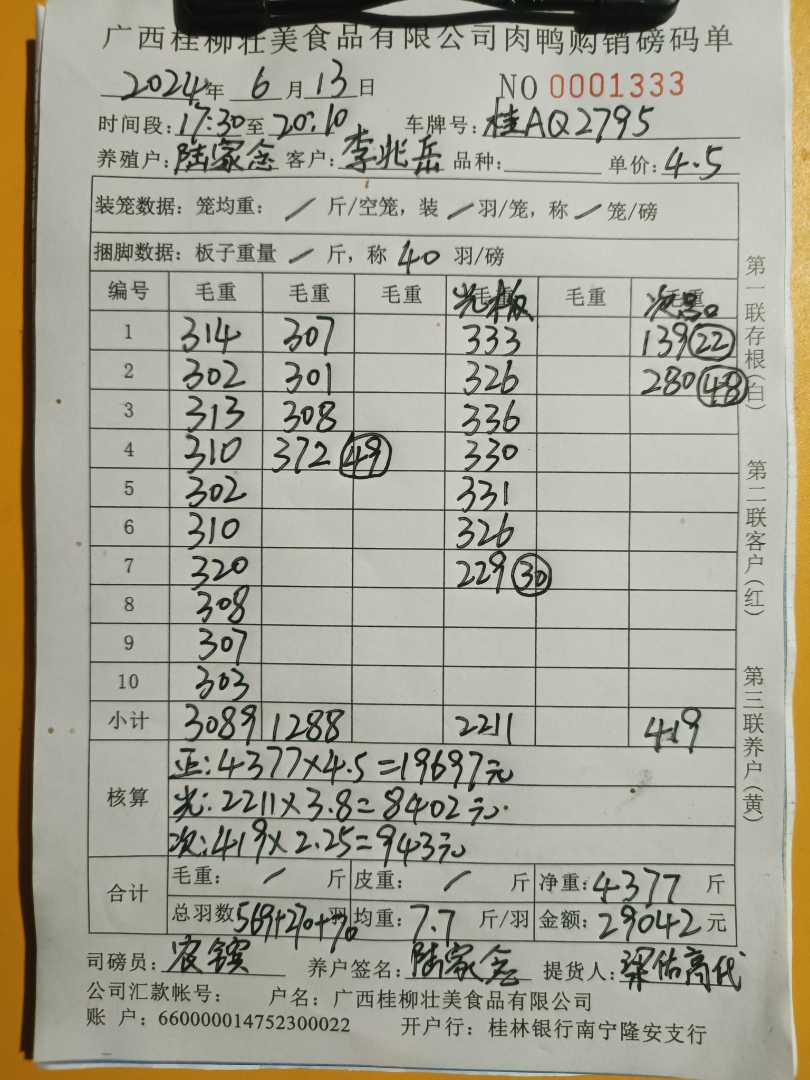 广西桂柳壮美食品有限公司肉鸭购销磅码单
2024年 6月13日 NO 0001333
时间段: 17:30至20:10 车牌号: 桂AQ2795
养殖户: 陆家念 客户: 李兆岳 品种: 单价: 4.5
装笼数据: 笼均重: / 斤/空笼, 装 / 羽/笼, 称 / 笼/磅
捆脚数据: 板子重量 / 斤, 称 40 羽/磅
编号 毛重 毛重 毛重 光板 毛重 次品
1 314 307 333 139 22
2 302 301 326 280 48
3 313 308 336
4 310 372 49 330
5 302 331
6 310 326
7 320 229 30
8 308
9 307
10 303
小计 3089 1288 2211 419
核算
正: 4377×4.5=19697元
光: 2211×3.8=8402元.
次: 419×2.25=943元
合计
毛重: / 斤 皮重: / 斤 净重: 4377 斤
总羽数 569+270+70 羽 均重: 7.7 斤/羽 金额: 29042 元
司磅员: 养户签名: 陆家念 提货人: 梁佑高代
公司汇款帐号: 户名: 广西桂柳壮美食品有限公司
账 户: 660000014752300022 开户行: 桂林银行南宁隆安支行
第一联存根(白)
第二联客户(红)
第三联养户(黄)